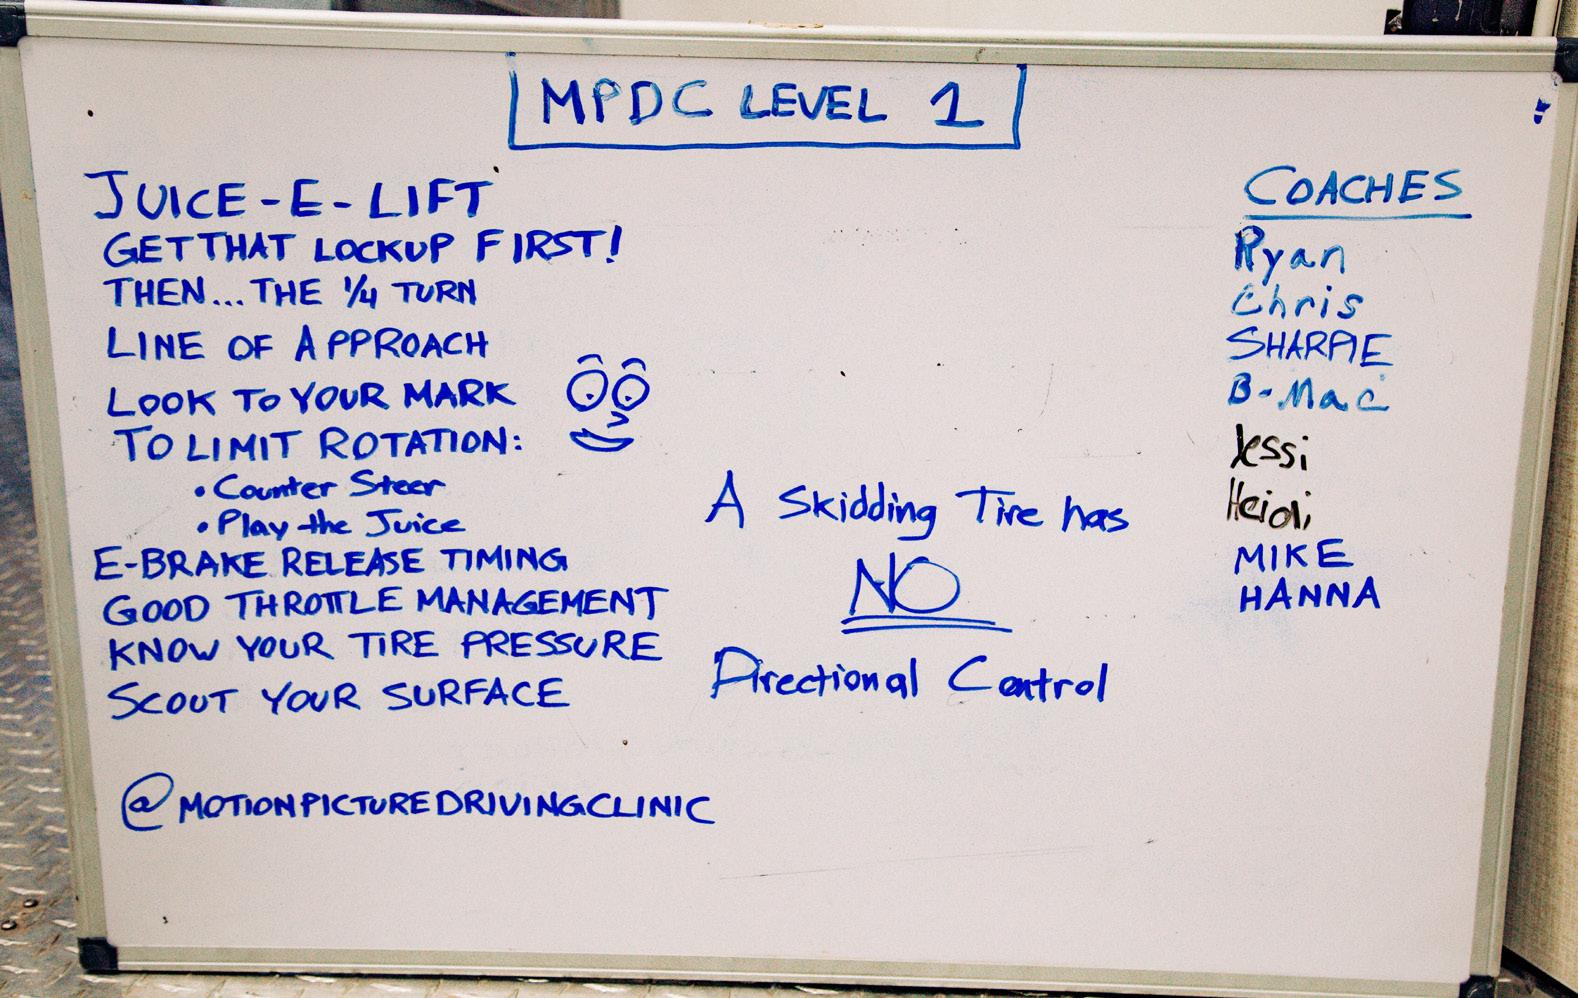 MPDC LEVEL 1
JUICE-E-LIFT
GET THAT LOCKUP FIRST!
THEN...THE 1/4 TURN
LINE OF APPROACH
LOOK TO YOUR MARK
TO LIMIT ROTATION:
• Counter Steer
• Play the Juice
E-BRAKE RELEASE TIMING
GOOD THROTTLE MANAGEMENT
KNOW YOUR TIRE PRESSURE
SCOUT YOUR SURFACE
@MOTIONPICTUREDRIVINGCLINIC
A Skidding Tire has
NO
Directional Control
COACHES
Ryan
Chris
SHARPIE
B-Mac
Jessi
Heidi
MIKE
HANNA